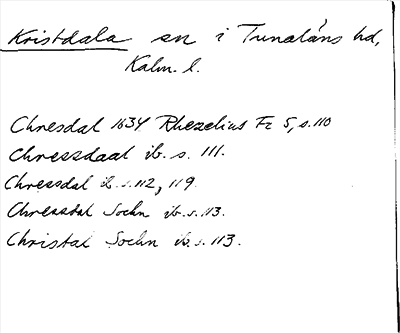 Kristdala sn i Tunaläns hd,
Kalm. l.
Chresdal 1634 Rhezelius Fc 5, s. 110
Chressdaal ib. s. 111.
Chressdal ib. s. 112, 119.
Chressdal Sochn ib. s. 113.
Christal Sochn ib. s. 113.